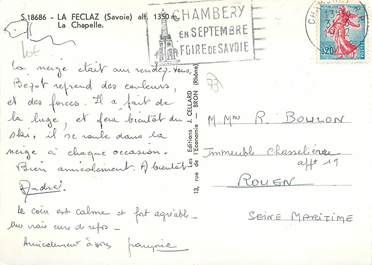 S.18686 - LA FECLAZ (Savoie) alt. 1350 m.
La Chapelle.
CHAMBERY
EN SEPTEMBRE
FOIRE DE SAVOIE
0,20
La neige était au rendez-vous,
reprend des couleurs,
et des forces. Il a fait de
la luge, et fera bientôt du
ski, il se roule dans la
neige à chaque occasion.
Bien amicalement. A bientôt
André.
Le coin est calme et fort agréable
une vraie cure de repos -
Amicalement à vous françoise
Les Editions J. CELLARD
13, rue de l'Economie - BRON (Rhône)
M. Mme R. BOULON
Immeuble Chasselière
appt 19
ROUEN
SEINE MARITIME